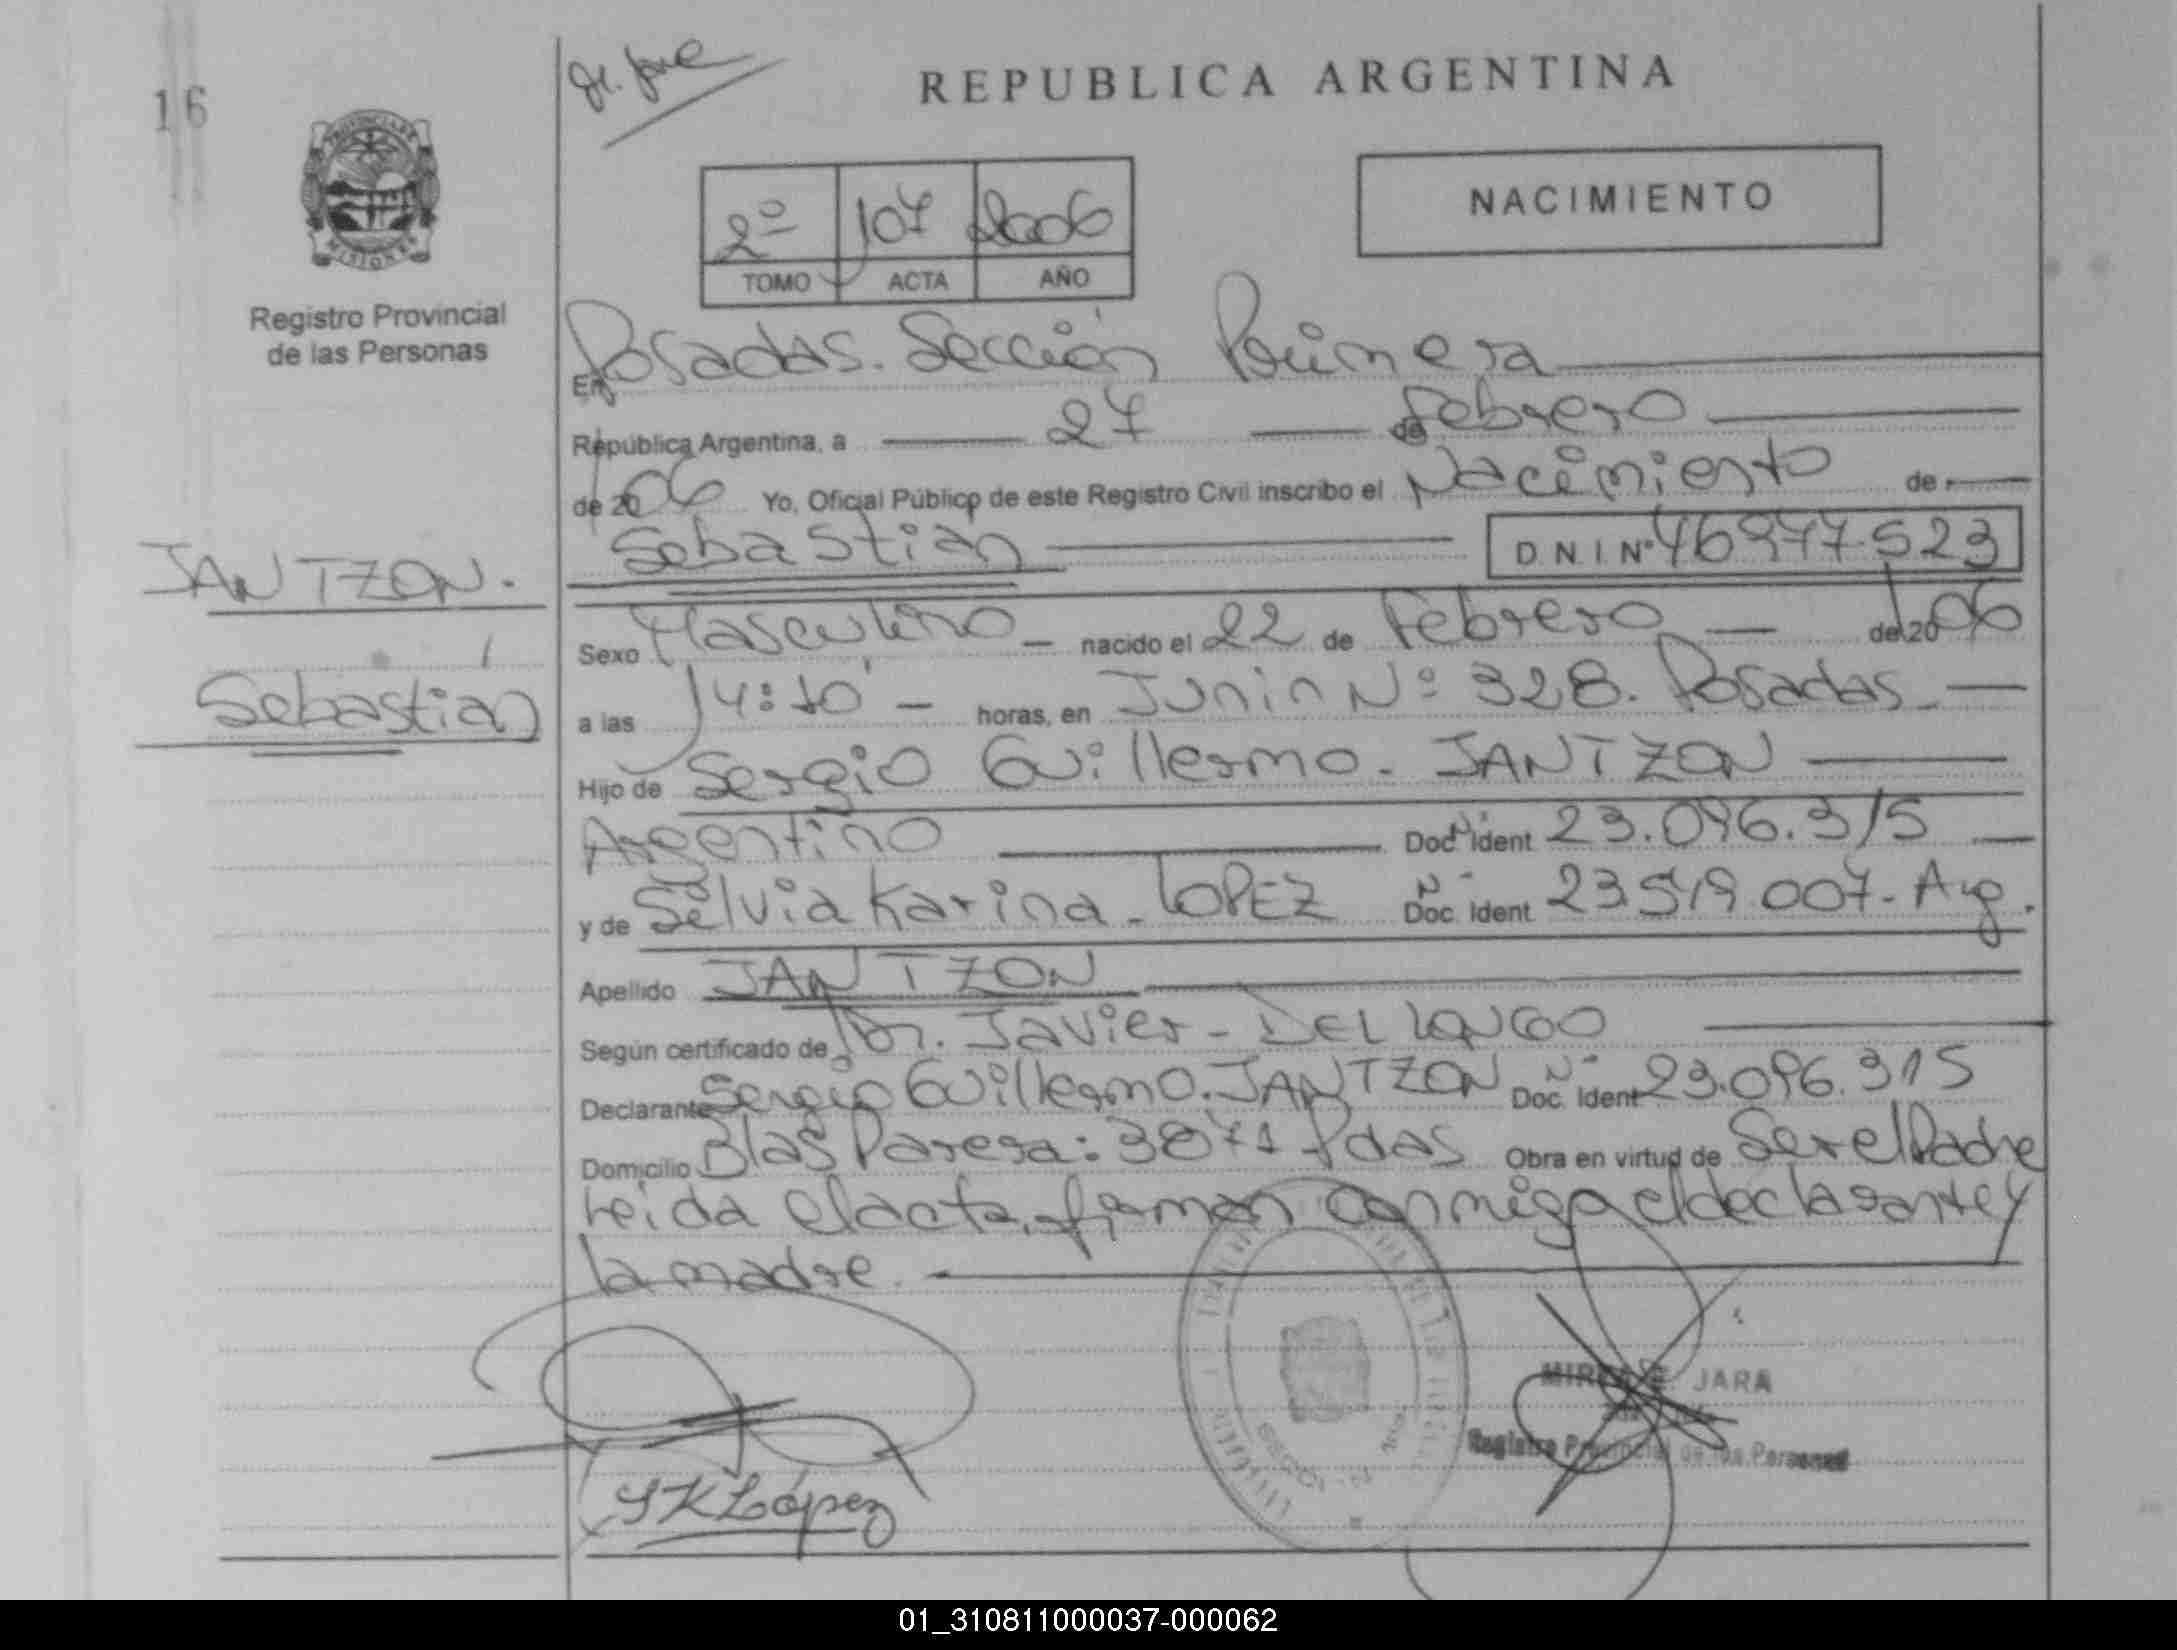 16
REPUBLICA ARGENTINA
PROVINCIA DE
MISIONES
2º 107 2006
TOMO ACTA AÑO
NACIMIENTO
Registro Provincial
de las Personas
En Posadas. Sección Primera
República Argentina, a 27 de Febrero
de 2006 Yo, Oficial Público de este Registro Civil inscribo el Nacimiento de
Sebastián D.N.I. Nº 46.977.523
JANTZON.
Sebastián
Sexo Masculino nacido el 22 de Febrero de 2006
a las 14:10 horas, en Junín Nº 328. Posadas.
Hijo de Sergio Guillermo. JANTZON
Argentino Doc. Ident Nº 23.096.315
y de Silvia Karina. LOPEZ Doc. Ident Nº 23.519.007. Arg.
Apellido JANTZON
Según certificado de Dr. Javier - DEL LONGO
Declarante Sergio Guillermo. JANTZON Doc. Ident Nº 23.096.315
Domicilio Blas Parera: 3871 Pdas Obra en virtud de Ser el Padre
Leida el acta, firman conmigo el declarante y
la madre.
JARA
Registro Provincial de las Personas
SKLópez
01_310811000037-000062